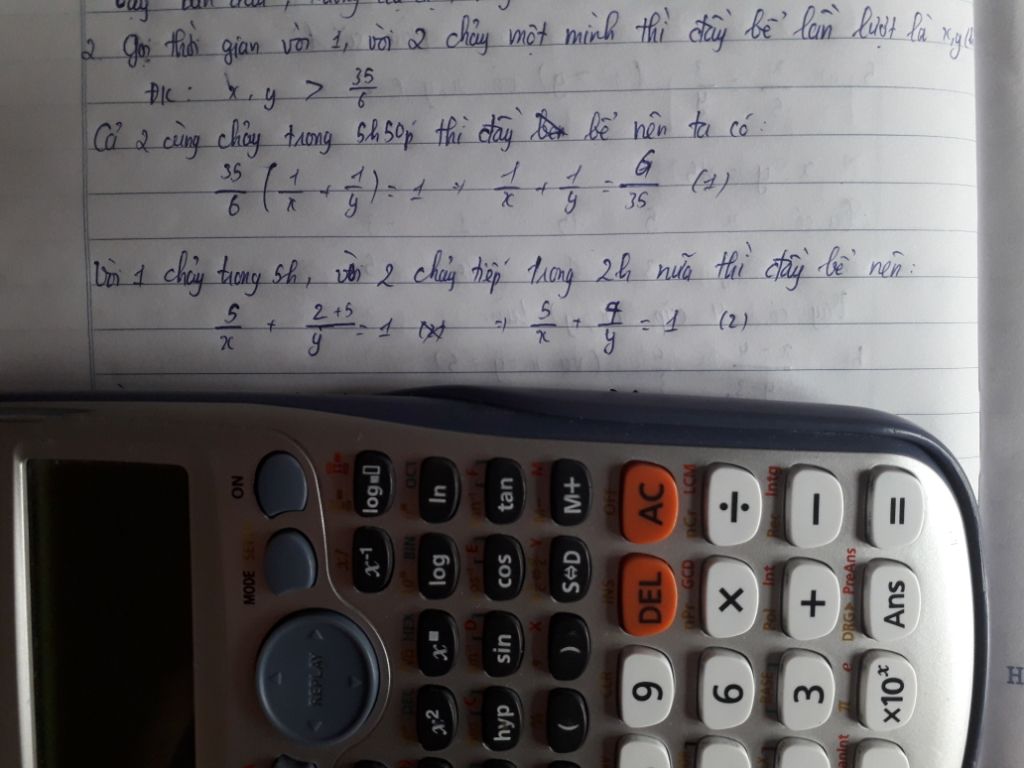 2. Gọi thời gian vòi 1, vòi 2 chảy một mình thì đầy bể lần lượt là x, y
ĐK: x, y > 35/6
Cả 2 cùng chảy trong 5h50p thì đầy bể nên ta có:
35/6 (1/x + 1/y) = 1 => 1/x + 1/y = 6/35 (1)
Vòi 1 chảy trong 5h, vòi 2 chảy tiếp trong 2h nữa thì đầy bể nên:
5/x + 2+5/y = 1 => 5/x + 7/y = 1 (2)
ON
MODE
REPLAY
log
ln
tan
M+
AC
÷
−
=
x⁻¹
log
cos
S⇔D
DEL
×
+
Ans
PreAns
DRG▸
x■
sin
)
9
6
3
×10ˣ
x²
hyp
(
OFF
LCM
GCD
Int
Intg
INS
π
e
H